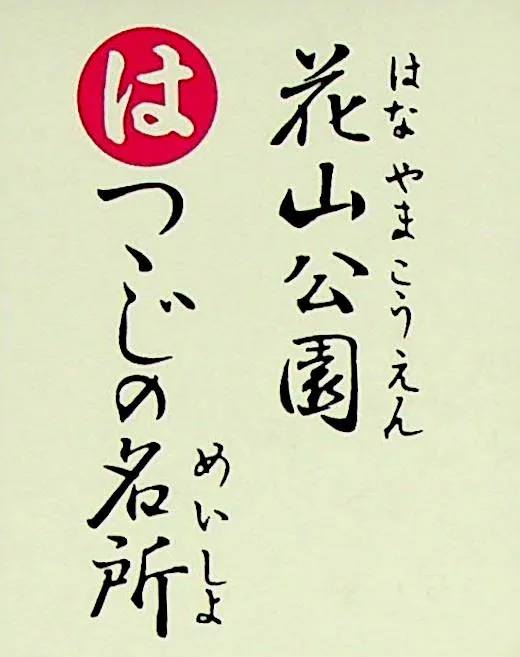 花山公園
はなやまこうえん
は
つゝじの名所
めいしよ